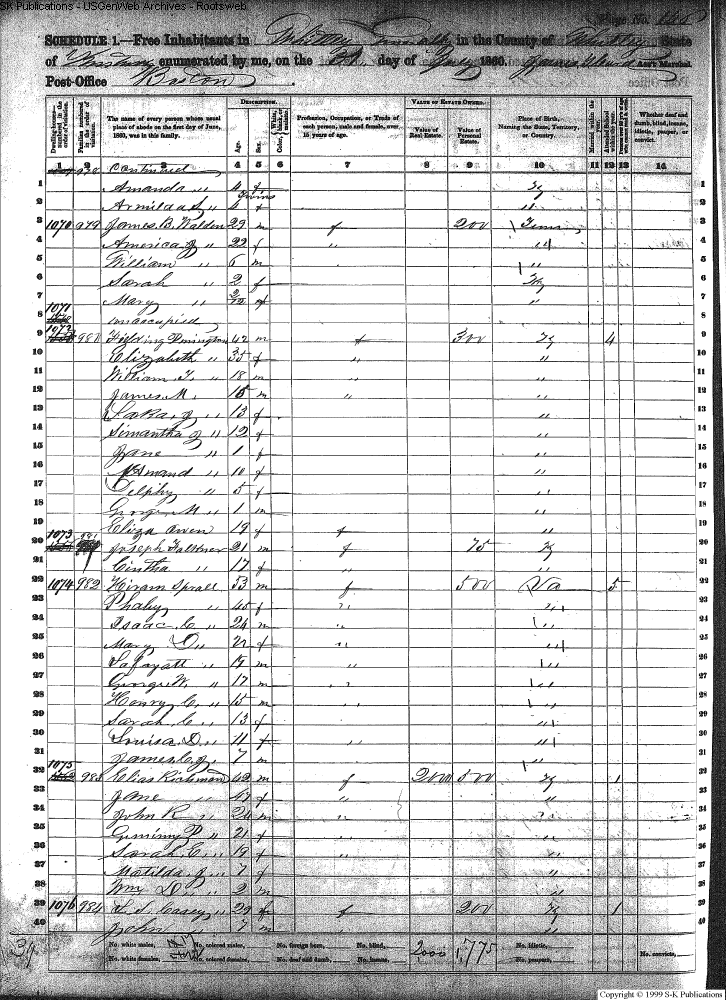 SK Publications - USGenWeb Archives - Rootsweb
Page No.
SCHEDULE 1.—Free Inhabitants in in the County of Whitley State
of enumerated by me, on the day of 1860. Ass't Marshal.
Post-Office
DESCRIPTION. VALUE OF ESTATE OWNED.
Dwelling-houses—numbered in the order of visitation. Families numbered in the order of visitation. The name of every person whose usual place of abode on the first day of June, 1860, was in this family. Age. Sex. Color, White, black, or mulatto. Profession, Occupation, or Trade of each person, male and female, over 15 years of age. Value of Real Estate. Value of Personal Estate. Place of Birth, Naming the State, Territory, or Country. Married within the year. Attended School within the year. Whether deaf and dumb, blind, insane, idiotic, pauper, or convict.
1 2 3 4 5 6 7 8 9 10 11 12 13 14
Continued
1 Amanda " 4 f Ky 1
2 Armilda S. " 4 f " 2
3 1070 979 James B. Walden 29 m f 200 Tenn 3
4 America J " 22 f " " 4
5 William " 6 m " 5
6 Sarah " 2 f Ky 6
7 Mary " f " 7
8 1071 unoccupied 8
9 1072 980 42 m f 300 Ky 4 9
10 Elizabeth " 35 f " " 10
11 William T. " 18 m " " 11
12 James M. 15 m " " 12
13 " 13 f " 13
14 Simantha J " 12 f " 14
15 Jane " 1 f " 15
16 " 10 f " 16
17 Delphy " 5 f " 17
18 George M " 1 m " 18
19 Eliza Owen 19 f f " 19
20 1073 981 Joseph Faltner 21 m f 75 Ky 20
21 Cintha " 17 f " 21
22 1074 982 Hiram Spratt 53 m f 500 Va 5 22
23 Phaby " 45 f " " 23
24 Isaac C " 24 m " " 24
25 Mary D " 22 f " " 25
26 Lafayatt " 19 m " " 26
27 George W. " 17 m " " 27
28 Henry C. " 15 m " " 28
29 Sarah C. " 13 f " 29
30 Louisa D. " 11 f " " 30
31 James C. J. 7 m " 31
32 1075 983 Elias Richmond 42 m f 2000 500 Ky 1 32
33 Jane " 47 f " " 33
34 John R " 24 m " " 34
35 P " 21 f " " 35
36 Sarah C. " 19 f " " 36
37 Matilda J " 7 f " 37
38 Wm D. " 2 m " 38
39 1076 984 Casey " 29 f f 200 Ky 1 39
40 John " 7 m " 40
No. white males, No. colored males, No. foreign born, No. blind, 2000 1,775 No. idiotic,
No. white females, No. colored females, No. deaf and dumb, No. insane, No. paupers, No. convicts,
Copyright © 1999 S-K Publications